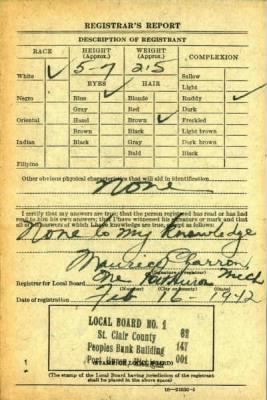 REGISTRAR'S REPORT
DESCRIPTION OF REGISTRANT
RACE HEIGHT (Approx.) WEIGHT (Approx.) COMPLEXION
White ✓ 5-7 215 Sallow
EYES HAIR Light
Negro Blue ✓ Blonde Ruddy ✓
Gray Red Dark
Oriental Hazel Brown ✓ Freckled
Brown Black Light brown
Indian Black Gray Dark brown
Bald Black
Filipino
Other obvious physical characteristics that will aid in identification
None
I certify that my answers are true; that the person registered has read or has had
read to him his own answers; that I have witnessed his signature or mark and that
all of his answers of which I have knowledge are true, except as follows:
None to my Knowledge
Maurice Charron
(Signature of registrar)
Registrar for Local Board One Mich
(Number) (City or county) (State)
Date of registration Feb 16-1942
LOCAL BOARD NO. 1 82
St. Clair County 147
Peoples Bank Building 001
Port Huron, Michigan
(STAMP OF LOCAL BOARD)
(The stamp of the Local Board having jurisdiction of the registrant
shall be placed in the above space)